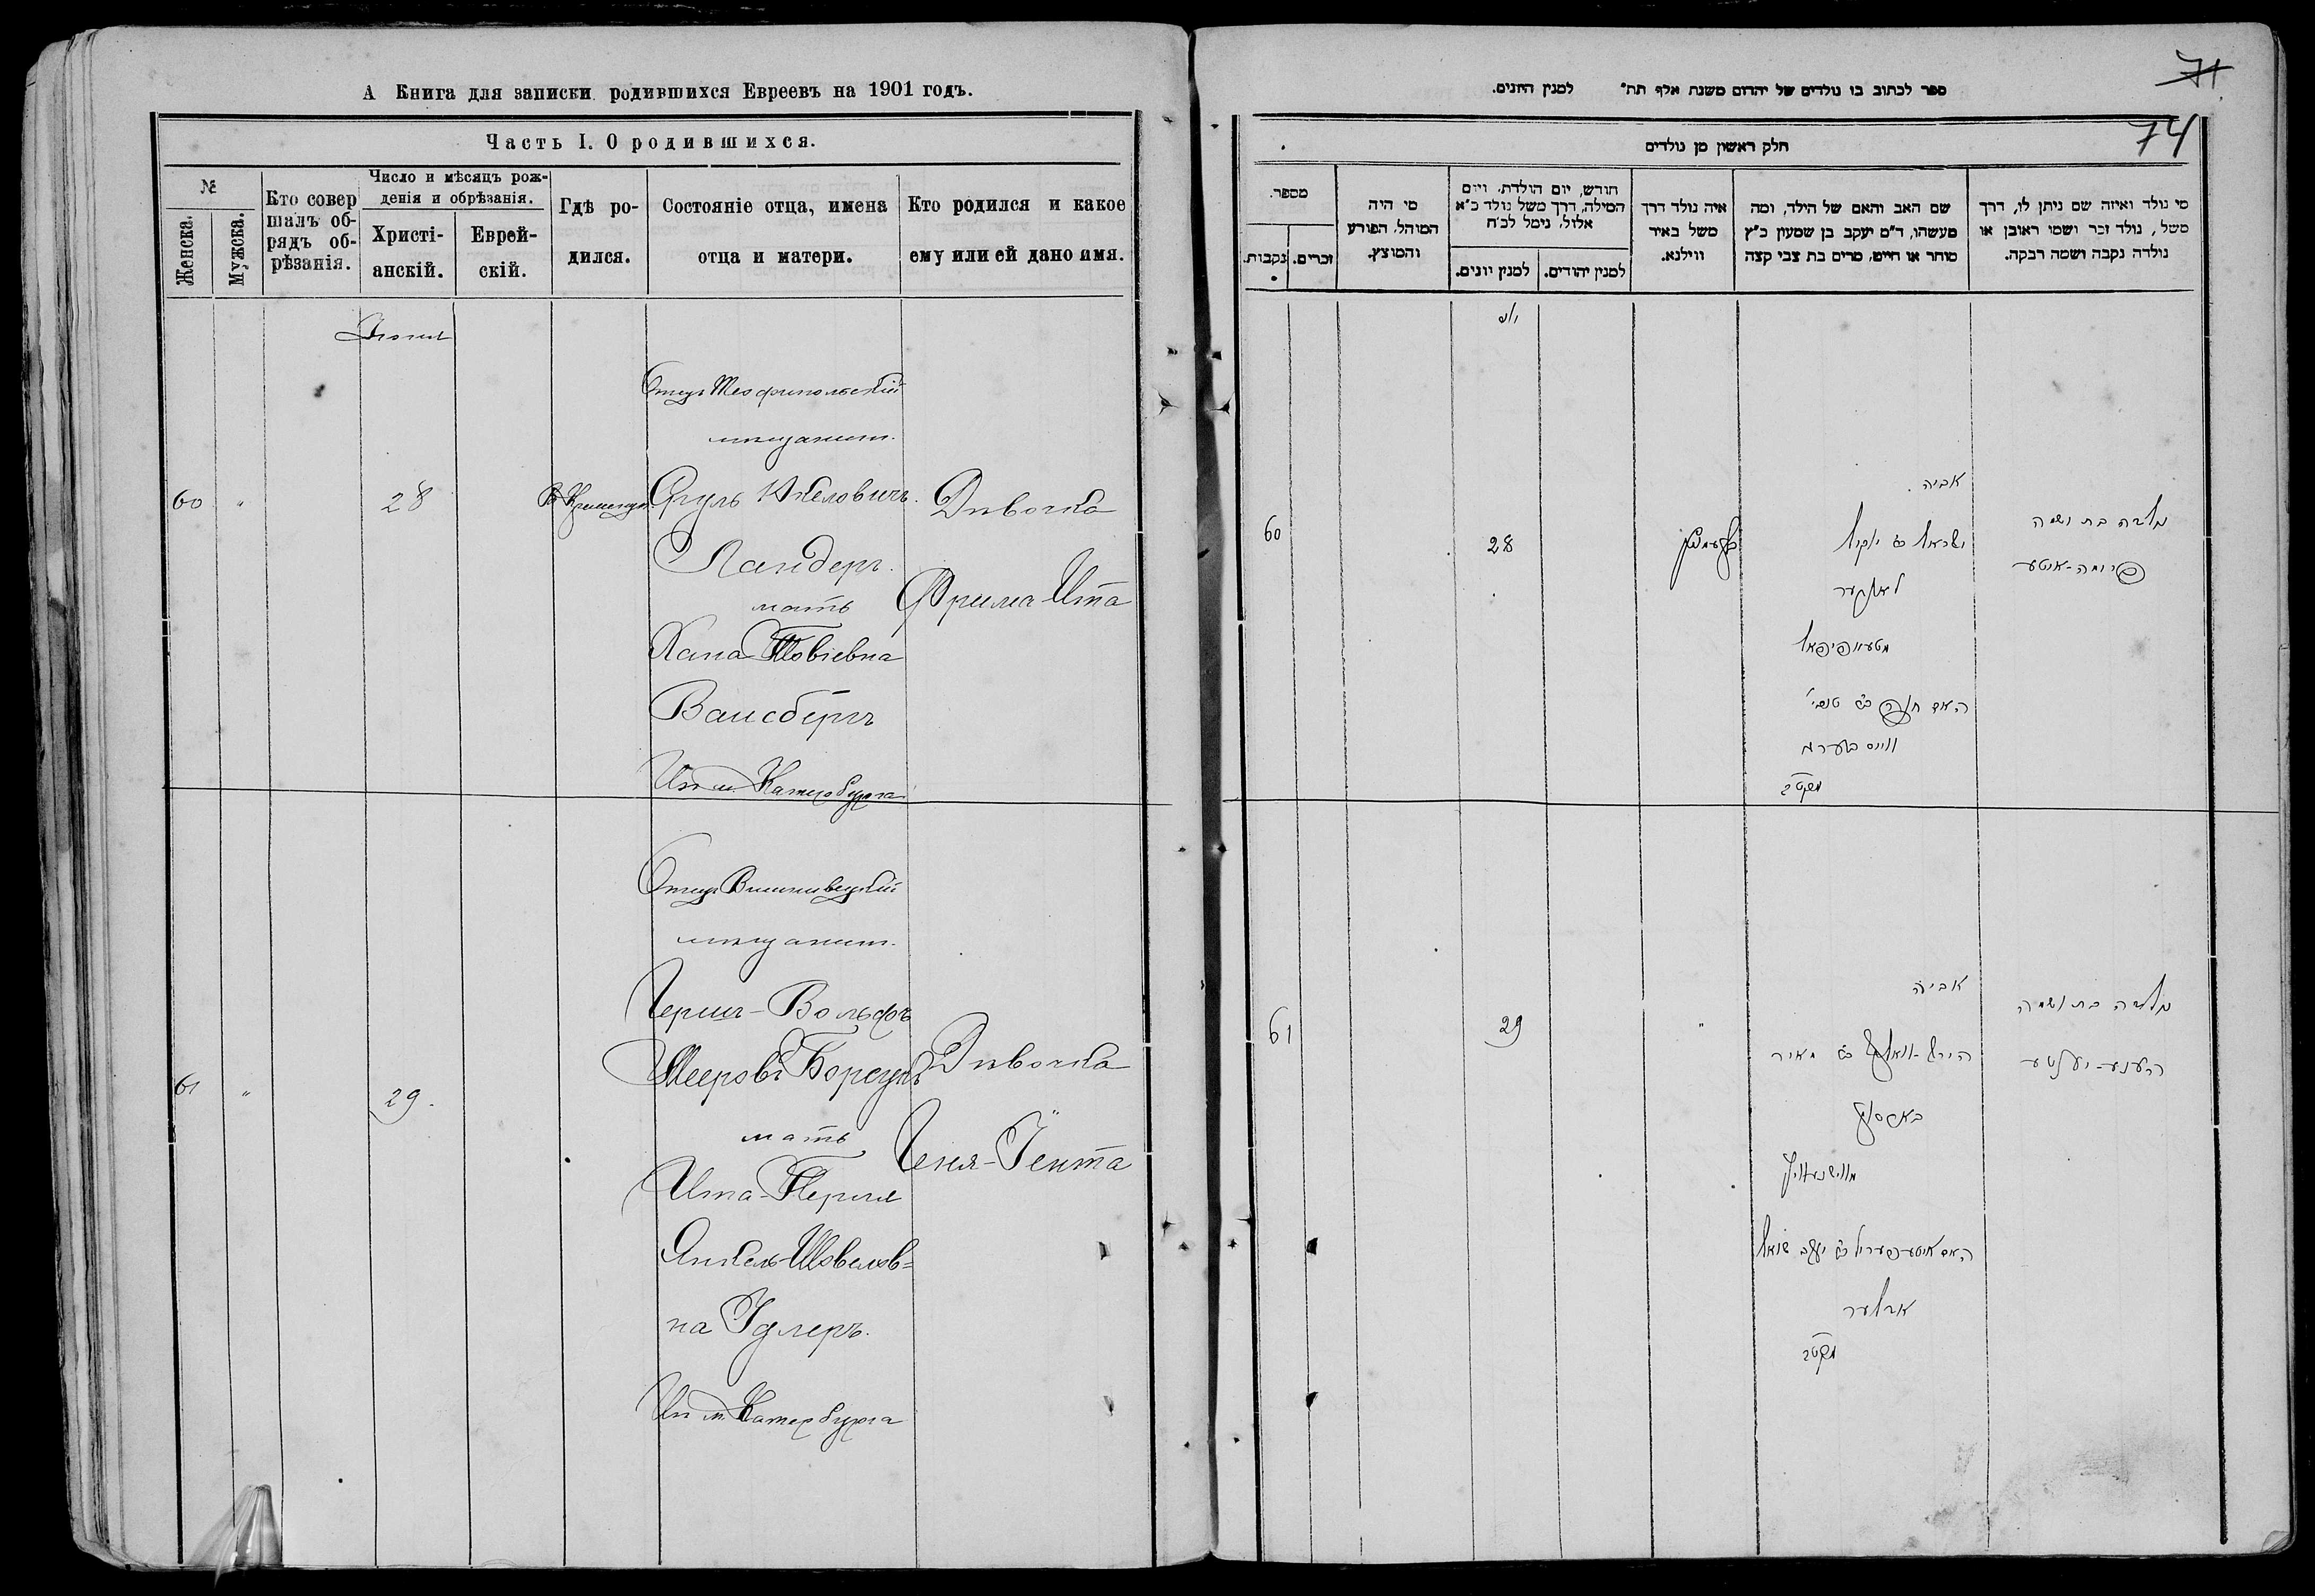 А Книга для записки родившихся Евреевъ на 1901 годъ.
Часть I. О родившихся.
№
Женска.
Мужска.
Кто совер
шалъ об-
рядъ об-
рѣзанія.
Число и мѣсяцъ рож-
денія и обрѣзанія.
Христі-
анскій.
Еврей-
скій.
Гдѣ ро-
дился.
Состояніе отца, имена
отца и матери.
Кто родился и какое
ему или ей дано имя.
Отецъ Теофипольскій
мѣщанин.
60
"
28
Сруль Икелович.
Ландер.
мать
Хана Товіевна
Вайсберг
Из м. Катербурга
Дѣвочка
Фрима Ита
Отец Вишневецкій
мѣщанин.
61
"
29.
Герш-Вольфъ
Мееров Борсукъ
мать
Ита-Перля
Янкель-Шовелов=
на Идлеръ.
Из м. Катербурга
Дѣвочка
Геня-Іента
71
74
ספר לכתוב בו נולדים של יהדום משנת אלף תת" למנין היונים.
חלק ראשון מן נולדים
מספר.
נקבות.
זכרים.
מי היה
המוהל, הפורע
והמוצץ.
חודש, יום הולדת, ויום
המילה, דרך משל נולד כ"א
אלול, נימל לכ"ח
למנין יונים.
למנין יהודים.
איה נולד דרך
משל באיד
ווילנא.
שם האב והאם של הילד, ומה
מעשהו, ד"מ יעקב בן שמעון כ"ץ
סוחר או חייט, מרים בת צבי קצה
מי נולד ואיזה שם ניתן לו, דרך
משל, נולד זכר ושמו ראובן או
נולדה נקבה ושמה רבקה.
60
28
אביה
לאנדער
ווייסבערג
נולדה בת ושמה
פרומה-איטע
61
29
"
אביה
הירש-וואלף ב"ר מאיר
בארסוק
אדלער
נולדה בת ושמה
הענע-יענטע